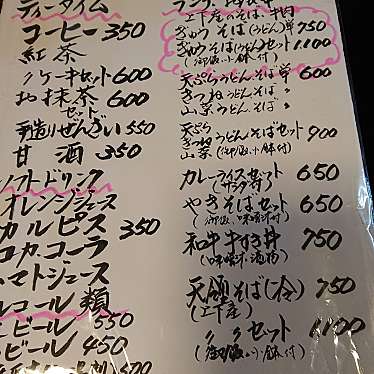 ティータイム
コーヒー 350
紅茶
ケーキセット 600
お抹茶セット 600
手造りぜんざい 550
甘酒 350
ソフトドリンク
オレンジジュース
カルピス 350
コカ・コーラ
トマトジュース
ルコール類
ビール 550
ビール 450
500
ぎゅうそば(うどん)単 750
ぎゅうそば(うどん)セット 1100
(御飯・小鉢付)
天ぷらうどん・そば単 600
きつねうどん・そば〃
山菜うどん・そば〃
天ぷら
きつね うどんそばセット 900
山菜 (御飯・小鉢付)
カレーライスセット 650
(サラダ付)
やきそばセット 650
(御飯・味噌汁付)
和牛すき丼 750
(味噌汁・漬物)
天領そば(冷) 750
(上下産)
〃〃セット 1100
(御飯・小鉢付)